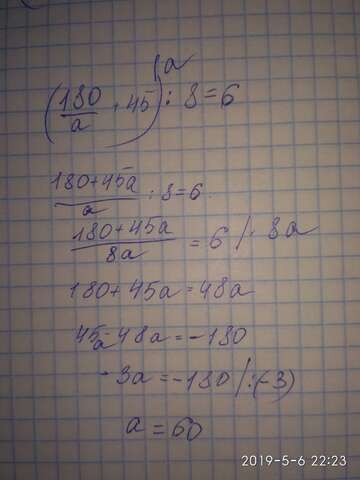 (180/a + 45) \a : 8 = 6
180+45a/a : 8 = 6
180+45a/8a = 6 /· 8a
180+45a=48a
45a-48a=-180
-3a=-180/:(-3)
a=60
2019-5-6 22:23